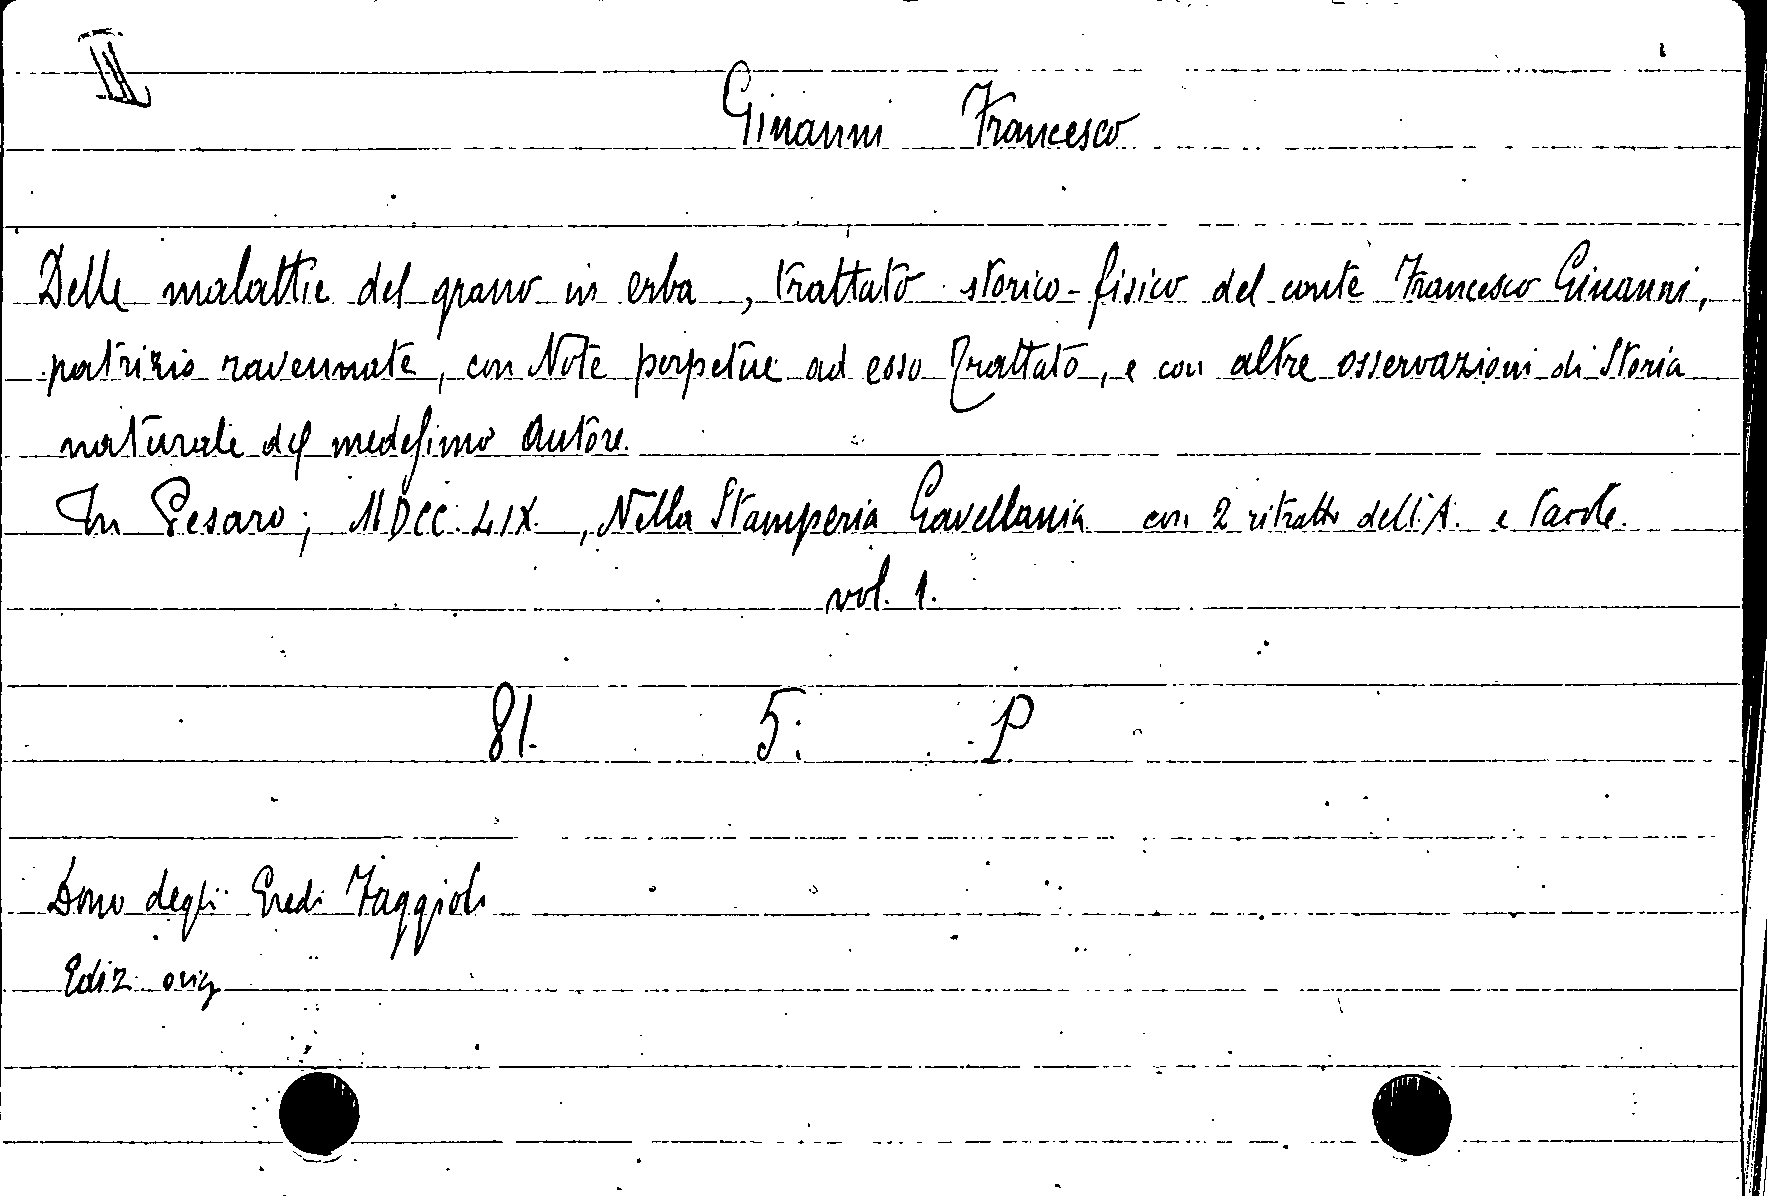 III
Ginanni Francesco
Delle malattie del grano in erba, trattato storico-fisico del conte Francesco Ginanni,
patrizio ravennate, con Note perpetue ad esso Trattato, e con altre osservazioni di Storia
naturale del medesimo autore.
In Pesaro; MDCC.LIX., Nella Stamperia Gavelliania con 2 ritratti dell'A. e tavole.
vol. 1.
81. 5. P
Dono degli Eredi Faggioli
Ediz. orig